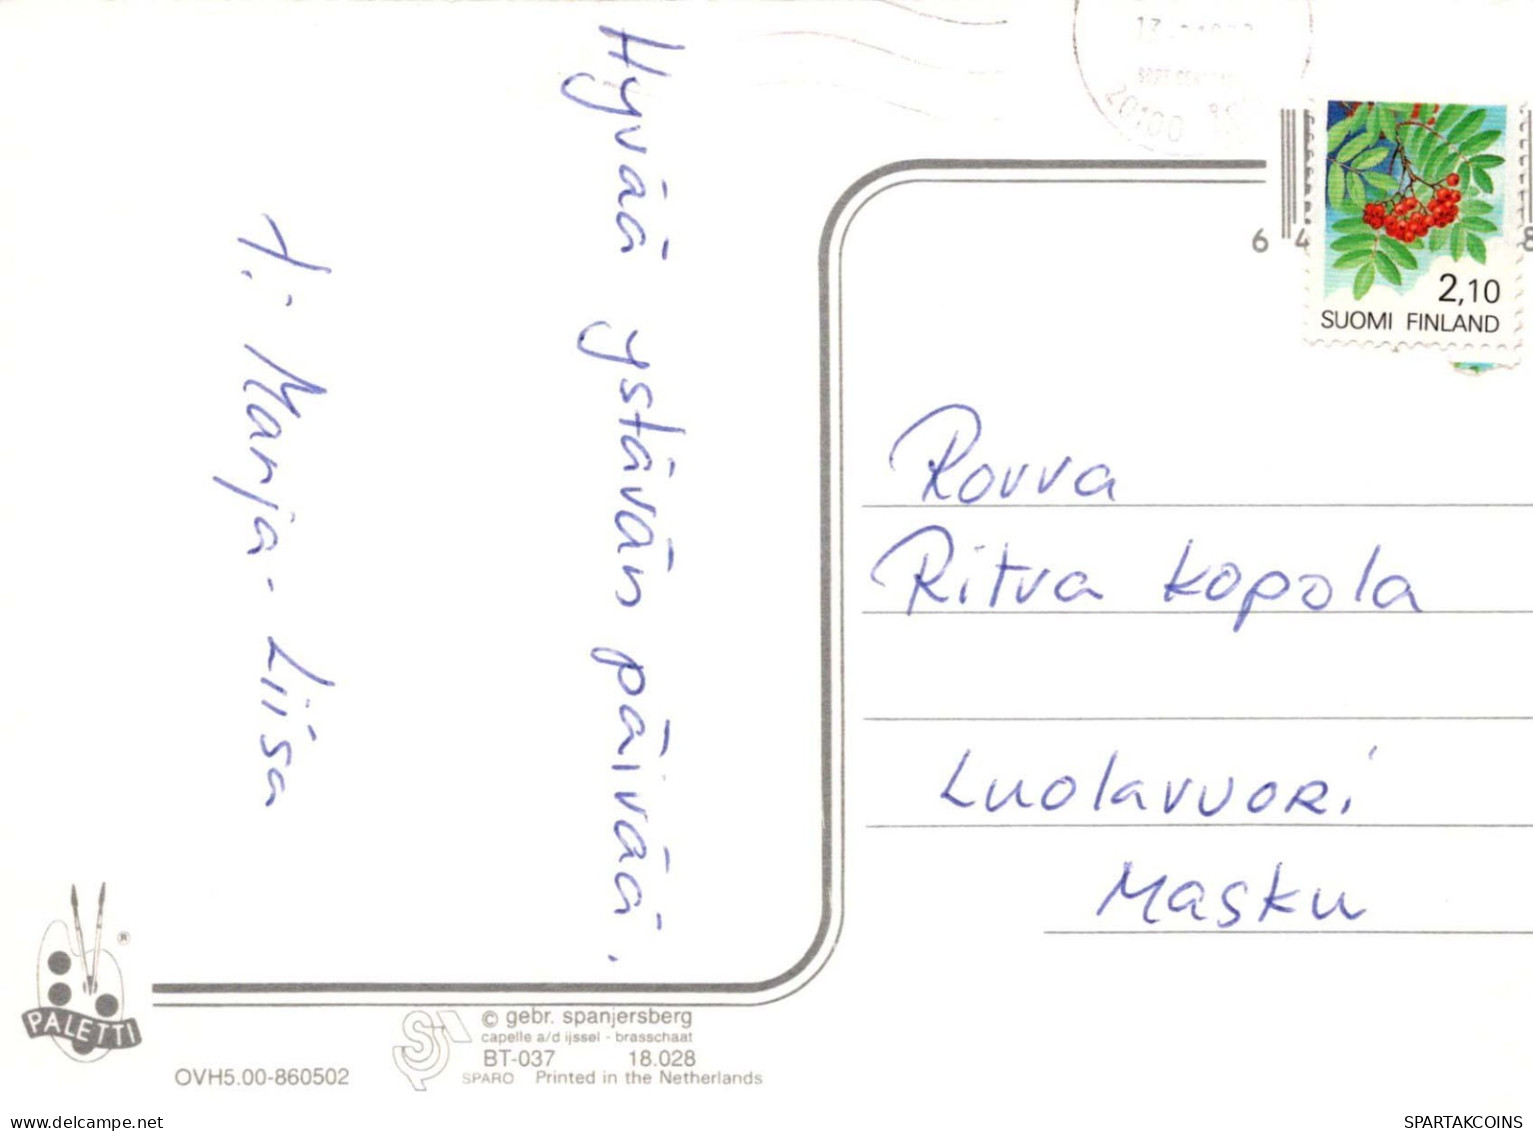 Hyvää ystävän päivää.
T: Marja-Liisa
20100
2,10
SUOMI FINLAND
6 4 8
Rouva
Ritva Kopola
Luolavuori
Masku
PALETTI ®
OVH5.00-860502
© gebr. spanjersberg
capelle a/d ijssel - brasschaat
BT-037 18.028
SPARO Printed in the Netherlands
www.delcampe.net
SPARTAKCOINS